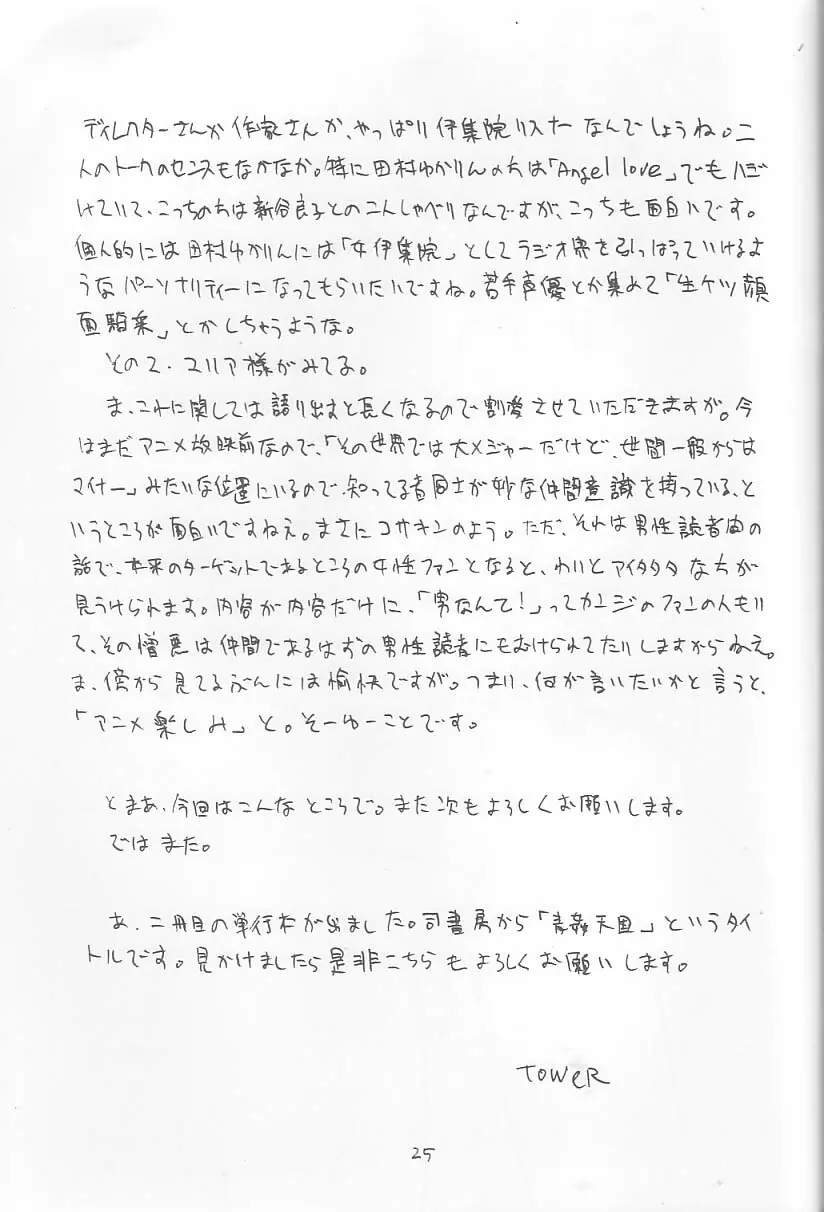 ディレクターさんか作家さんか、やっぱり伊集院リスナーなんでしょうね。二
人のトークのセンスもなかなか。特に田村ゆかりんの方は「Angel love」でもハジ
けていて、こっちの方は新谷良子との二人しゃべりなんですが、こっちも面白いです。
個人的には田村ゆかりんには「女伊集院」としてラジオ界を引っぱっていけるよ
うなパーソナリティーになってもらいたいですね。若手声優とか集めて「生ケツ顔
面騎乗」とかしちゃうような。
その2. マリア様がみてる。
ま、これに関しては語り出すと長くなるので割愛させていただきますが。今
はまだアニメ放映前なので、「その世界では大メジャーだけど、世間一般からは
マイナー」みたいな位置にいるので、知ってる者同士が妙な仲間意識を持っている、と
いうところが面白いですねえ。まさにコサキンのよう。ただ、それは男性読者側の
話で、本来のターゲットであるところの女性ファンとなると、わりとアイタタタな方が
見うけられます。内容が内容だけに、「男なんて!」ってカンジのファンの人もい
て、その憎悪は仲間であるはずの男性読者にもむけられてたりしますからねえ。
ま、傍から見てるぶんには愉快ですが。つまり、何が言いたいかと言うと、
「アニメ楽しみ」と。そーゆーことです。
とまあ、今回はこんなところで。また次もよろしくお願いします。
ではまた。
あ、二冊目の単行本が出ました。司書房から「青姦天国」というタイ
トルです。見かけましたら是非こちらもよろしくお願いします。
TOWeR
25